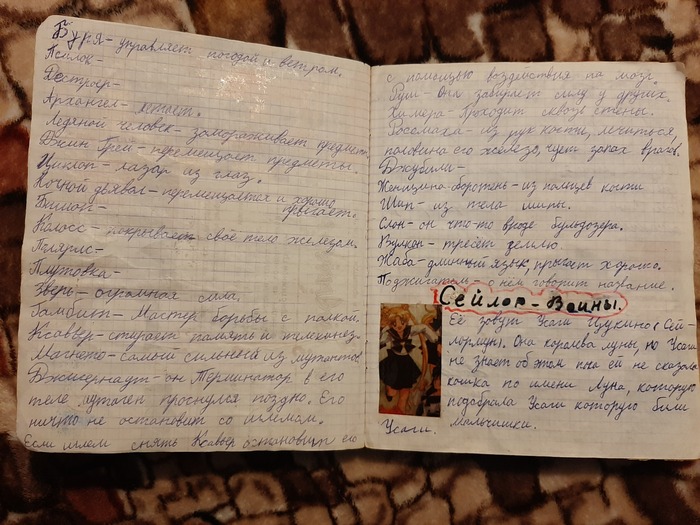 Буря - управляет погодой и ветром.
Псялок -
Дестроер -
Архангел - летает.
Ледяной человек - замораживает предмет.
Джин Грей - перемещает предметы.
Циклоп - лазар из глаз.
Ночной дьявол - перемещается и хорошо
прыгает.
Бишоп -
Колосс - покрывает своё тело железом.
Плутовка -
Зверь - огромная сила.
Гамбит - Мастер борьбы с палкой.
Ксавьер - стирает память и телекинез.
Магнето - самый сильный из мутантов
Джагернаут - он Терминатор в его
теле мутаген проснулся поздно. Его
ничто не остановит со шлемом.
Если шлем снять Ксавьер остановит его
с помощью воздействия на мозг.
Руш - Она забирает силу у других.
Химера - Проходит сквозь стены.
Росомаха - из рук когти, лечиться,
половина его железо, чует запах врагов.
Джубили -
Женщина-оборотень - из пальцев когти
Шип - из тела шипы.
Слон - он что-то вроде бульдозера.
Вулкан - трясёт землю
Жаба - длинный язык, прыгает хорошо.
Поджигатель - о нём говорит название.
Сейлор - Воины.
Её зовут Усаги Цукино (Сей-
лормун). Она королева луны, но Усаги
не знает об этом пока ей не сказала
кошка по имени Луна, которую
подобрала Усаги которую били
мальчишки.
Усаги.